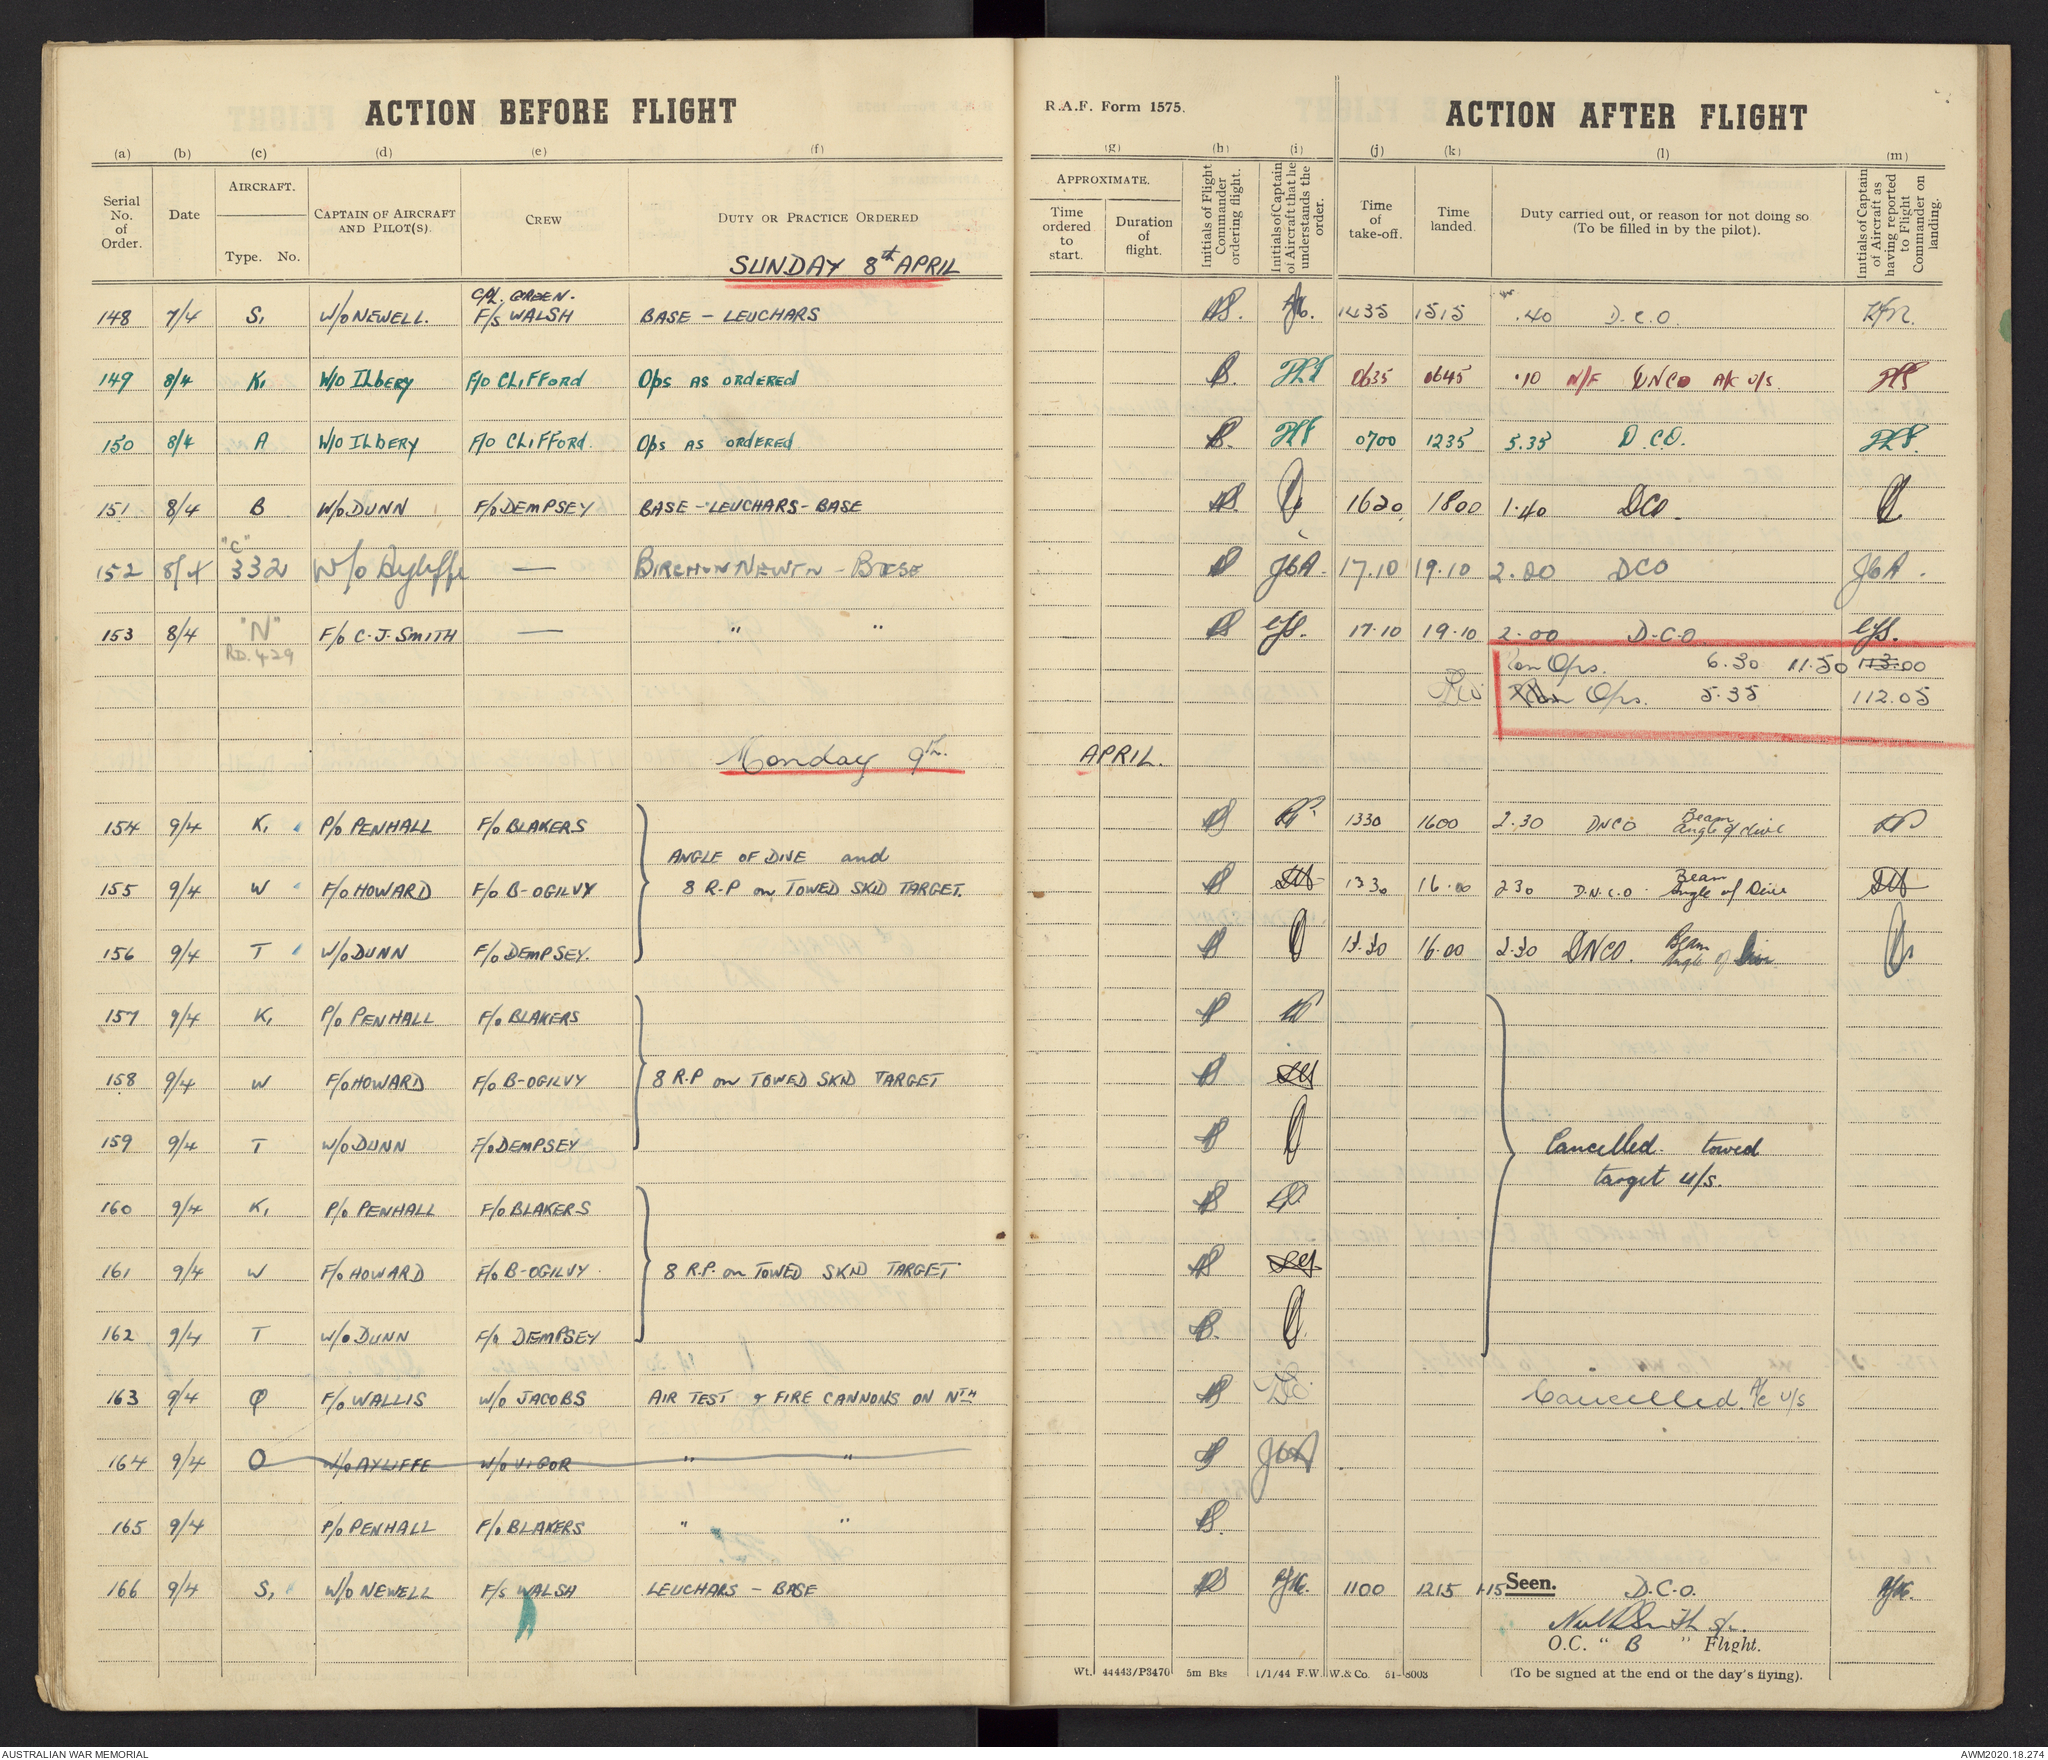 ACTION BEFORE FLIGHT
R.A.F. Form 1575.
ACTION AFTER FLIGHT
(a) (b) (c) (d) (e) (f) (g) (h) (i) (j) (k) (l) (m)
Serial No. of Order.
Date
AIRCRAFT.
Type. No.
CAPTAIN OF AIRCRAFT AND PILOT(S).
CREW
DUTY OR PRACTICE ORDERED
APPROXIMATE.
Time ordered to start.
Duration of flight.
Initials of Flight Commander ordering flight.
Initials of Captain of Aircraft that he understands the order.
Time of take-off.
Time landed.
Duty carried out, or reason for not doing so (To be filled in by the pilot).
Initials of Captain of Aircraft as having reported to Flight Commander on landing.
SUNDAY 8th APRIL
CPL. GREEN.
148 7/4 S, W/O NEWELL. F/S WALSH BASE - LEUCHARS 1435 1515 .40 D.C.O.
149 8/4 K, W/O ILBERY F/O CLIFFORD Ops AS ORDERED 0635 0645 .10 N/F DNCO A/C U/S.
150 8/4 A W/O ILBERY F/O CLIFFORD. Ops AS ORDERED 0700 1235 5.35 D.C.O.
151 8/4 B W/O DUNN F/O DEMPSEY BASE - LEUCHARS - BASE 1620 1800 1.40 DCO
"C"
152 8/4 332 W/O Ayliffe — BIRCHAM NEWTN - BASE JGA. 17.10 19.10 2.00 DCO JGA.
153 8/4 "N" F/O C.J. SMITH — " " CJS. 17.10 19.10 2.00 D.C.O. CJS.
RD.429
Ops. 6.30 11.50 113.00
Ops. 5.35 112.05
Monday 9th. APRIL.
154 9/4 K, P/O PENHALL F/O BLAKERS 1330 1600 2.30 DNCO Beam Angle of dive
ANGLE OF DIVE and
155 9/4 W F/O HOWARD F/O B-OGILVY 8 R.P on TOWED SKID TARGET. 1330 16.00 230 D.N.C.O. Beam Angle of Dive
156 9/4 T W/O DUNN F/O DEMPSEY. 13.30 16.00 2.30 DNCO. Beam Angle of Dive
157 9/4 K, P/O PENHALL F/O BLAKERS
158 9/4 W F/O HOWARD F/O B-OGILVY 8 R.P on TOWED SKID TARGET
159 9/4 T W/O DUNN F/O DEMPSEY Cancelled. towed
target u/s.
160 9/4 K, P/O PENHALL F/O BLAKERS
161 9/4 W F/O HOWARD F/O B-OGILVY 8 R.P. on TOWED SKID TARGET
162 9/4 T W/O DUNN F/O DEMPSEY
163 9/4 Q F/O WALLIS W/O JACOBS AIR TEST & FIRE CANNONS ON NTH Cancelled. A/C U/S
164 9/4 O W/O AYLIFFE W/O VIGOR " " JGA
165 9/4 P/O PENHALL F/O BLAKERS " "
166 9/4 S, W/O NEWELL F/S WALSH LEUCHARS - BASE 1100 1215 1.15 Seen. D.C.O.
O.C. " B " Flight.
Wt. 44443/P3470 5m Bks 1/1/44 F.W.W. & Co. 51-8003
(To be signed at the end of the day's flying).
AUSTRALIAN WAR MEMORIAL
AWM2020.18.274